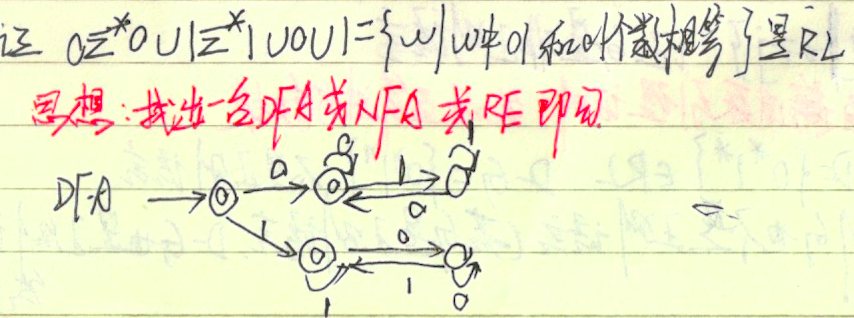 证 0Σ*0∪1Σ*1∪0∪1={w|w中01和01个数相等}是RL
思想:找出一台DFA或NFA或RE即可
DFA
0
0
1
1
0
1
0
1
1
0